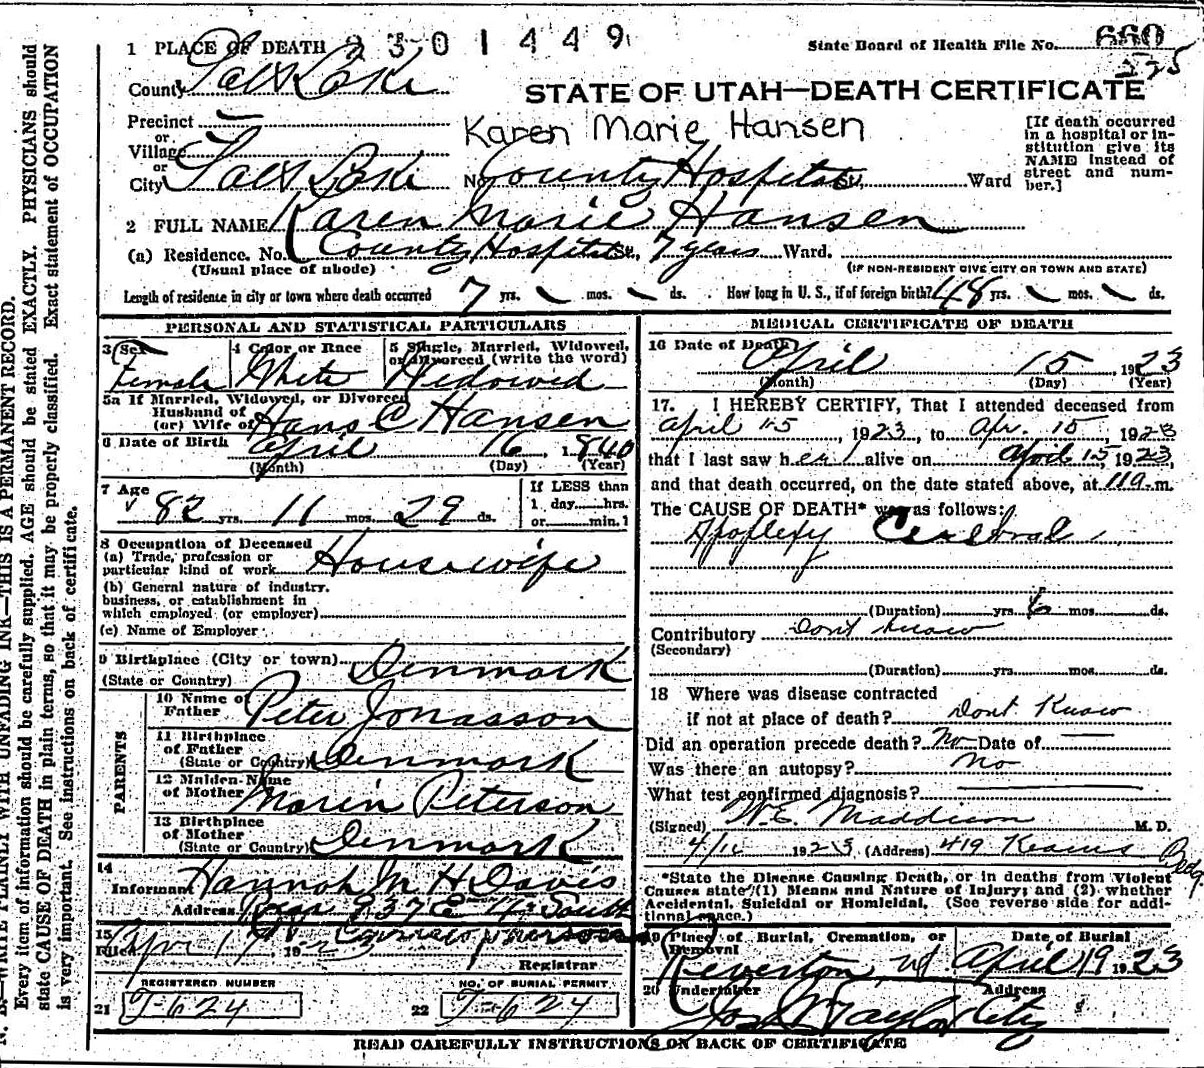 1 PLACE OF DEATH 2301449 State Board of Health File No. 660
225
County Salt Lake
STATE OF UTAH—DEATH CERTIFICATE
Karen Marie Hansen
Precinct —
or
Village
or
City Salt Lake No. County Hospital St., Ward
[If death occurred
in a hospital or in-
stitution give its
NAME instead of
street and num-
ber.]
2 FULL NAME Karen Marie Hansen
(a) Residence. No. County Hospital St., 7 years Ward.
(Usual place of abode) (IF NON-RESIDENT GIVE CITY OR TOWN AND STATE)
Length of residence in city or town where death occurred 7 yrs. — mos. — ds. How long in U. S., if of foreign birth? 48 yrs. — mos. — ds.
PERSONAL AND STATISTICAL PARTICULARS
3 Sex
Female
4 Color or Race
White
5 Single, Married, Widowed,
or Divorced (write the word)
Widowed
5a If Married, Widowed, or Divorced
Husband of
(or) Wife of Hans C Hansen
6 Date of Birth April 16, 1840
(Month) (Day) (Year)
7 Age
82 yrs. 11 mos. 29 ds.
If LESS than
1 day hrs.
or min.?
8 Occupation of Deceased
(a) Trade, profession or
particular kind of work Housewife
(b) General nature of industry,
business, or establishment in
which employed (or employer)
(c) Name of Employer
9 Birthplace (City or town) Denmark
(State or Country)
PARENTS
10 Name of
Father Peter Jonasson
11 Birthplace
of Father
(State or Country) Denmark
12 Maiden-Name
of Mother Maren Peterson
13 Birthplace
of Mother
(State or Country) Denmark
14
Informant Hannah M H Davis
Address Rear 937 E 4th South
15
Filed Apr 17, 1923
Registrar
REGISTERED NUMBER
21 J-624
NO. OF BURIAL PERMIT
22 J-624
MEDICAL CERTIFICATE OF DEATH
16 Date of Death
April 15 1923
(Month) (Day) (Year)
17. I HEREBY CERTIFY, That I attended deceased from
April 15, 1923, to Apr. 15, 1923
that I last saw her alive on April 15, 1923,
and that death occurred, on the date stated above, at 11a.m.
The CAUSE OF DEATH* was as follows:
Apoplexy Cerebral
(Duration) yrs. 6 mos. ds.
Contributory Dont know
(Secondary)
(Duration) yrs. mos. ds.
18 Where was disease contracted
if not at place of death? Dont Know
Did an operation precede death? No Date of —
Was there an autopsy? No
What test confirmed diagnosis? —
(Signed) W.E. Maddison M. D.
4/16 1923 (Address) 419 Kearns Bldg
*State the Disease Causing Death, or in deaths from Violent
Causes state (1) Means and Nature of Injury; and (2) whether
Accidental, Suicidal or Homicidal. (See reverse side for addi-
tional space.)
19 Place of Burial, Cremation, or
Removal
Riverton Ut
Date of Burial
April 19 1923
20 Undertaker
Jos Wm Taylor
Address
City
READ CAREFULLY INSTRUCTIONS ON BACK OF CERTIFICATE
N. B.—WRITE PLAINLY WITH UNFADING INK—THIS IS A PERMANENT RECORD.
Every item of information should be carefully supplied. AGE should be stated EXACTLY. PHYSICIANS should
state CAUSE OF DEATH in plain terms, so that it may be properly classified. Exact statement of OCCUPATION
is very important. See instructions on back of certificate.